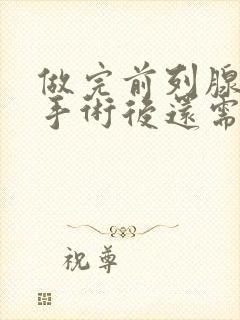 做完前列腺
手術後還需
祝尊